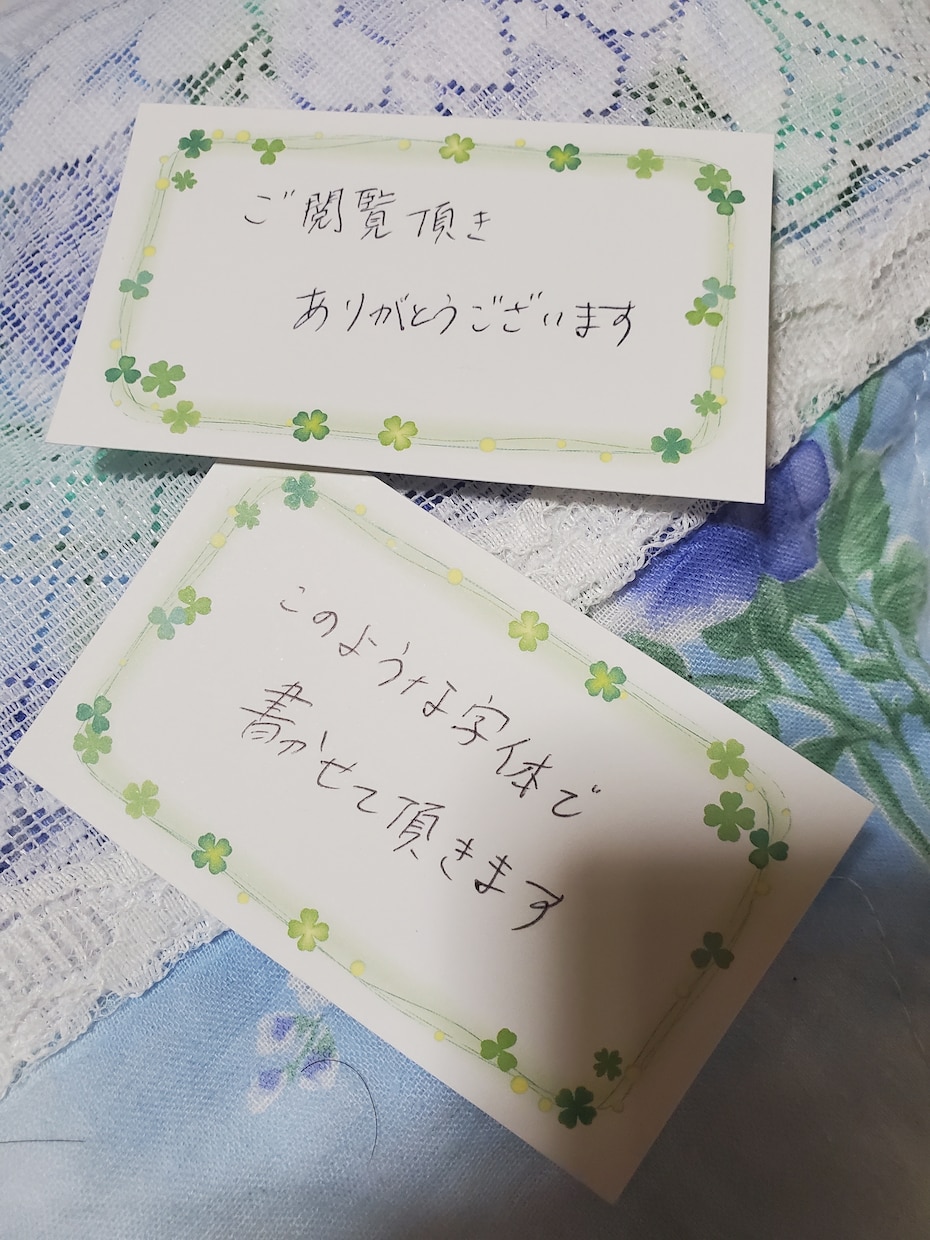 ご閲覧頂き
ありがとうございます
このような字体で
書かせて頂きます